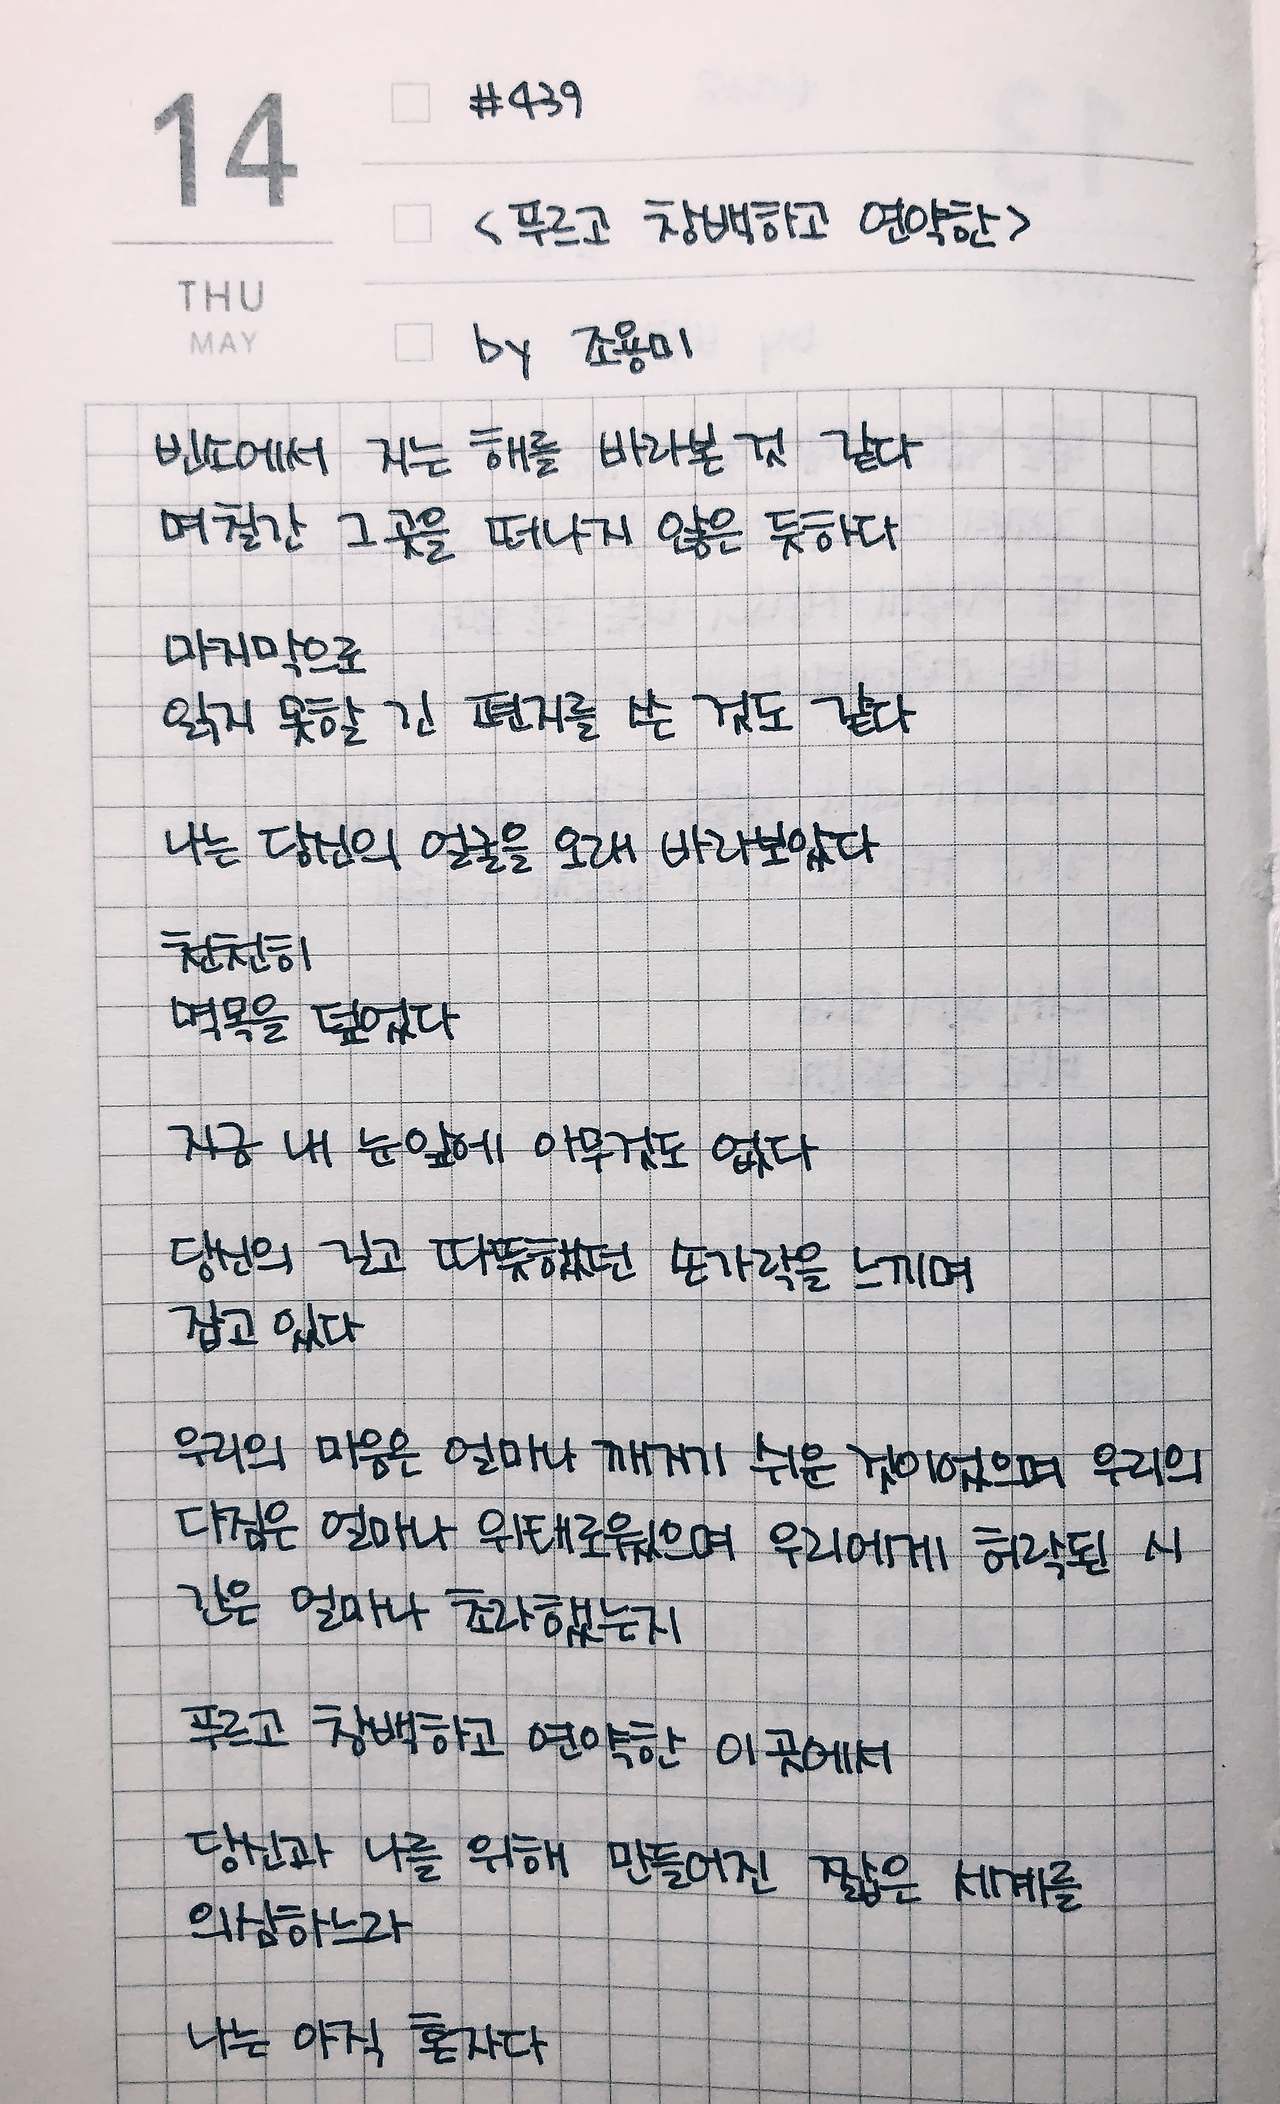 14
THU
MAY
#439
<푸르고 창백하고 연약한>
by 조용미
빈소에서 지는 해를 바라본 것 같다
며칠간 그곳을 떠나지 않은 듯하다
마지막으로
읽지 못할 긴 편지를 쓴 것도 같다
나는 당신의 얼굴을 오래 바라보았다
천천히
멱목을 덮었다
지금 내 눈앞에 아무것도 없다
당신의 길고 따뜻했던 손가락을 느끼며
잡고 있다
우리의 마음은 얼마나 깨지기 쉬운 것이었으며 우리의
다짐은 얼마나 위태로웠으며 우리에게 허락된 시
간은 얼마나 초라했는지
푸르고 창백하고 연약한 이곳에서
당신과 나를 위해 만들어진 짧은 세계를
의심하느라
나는 아직 혼자다